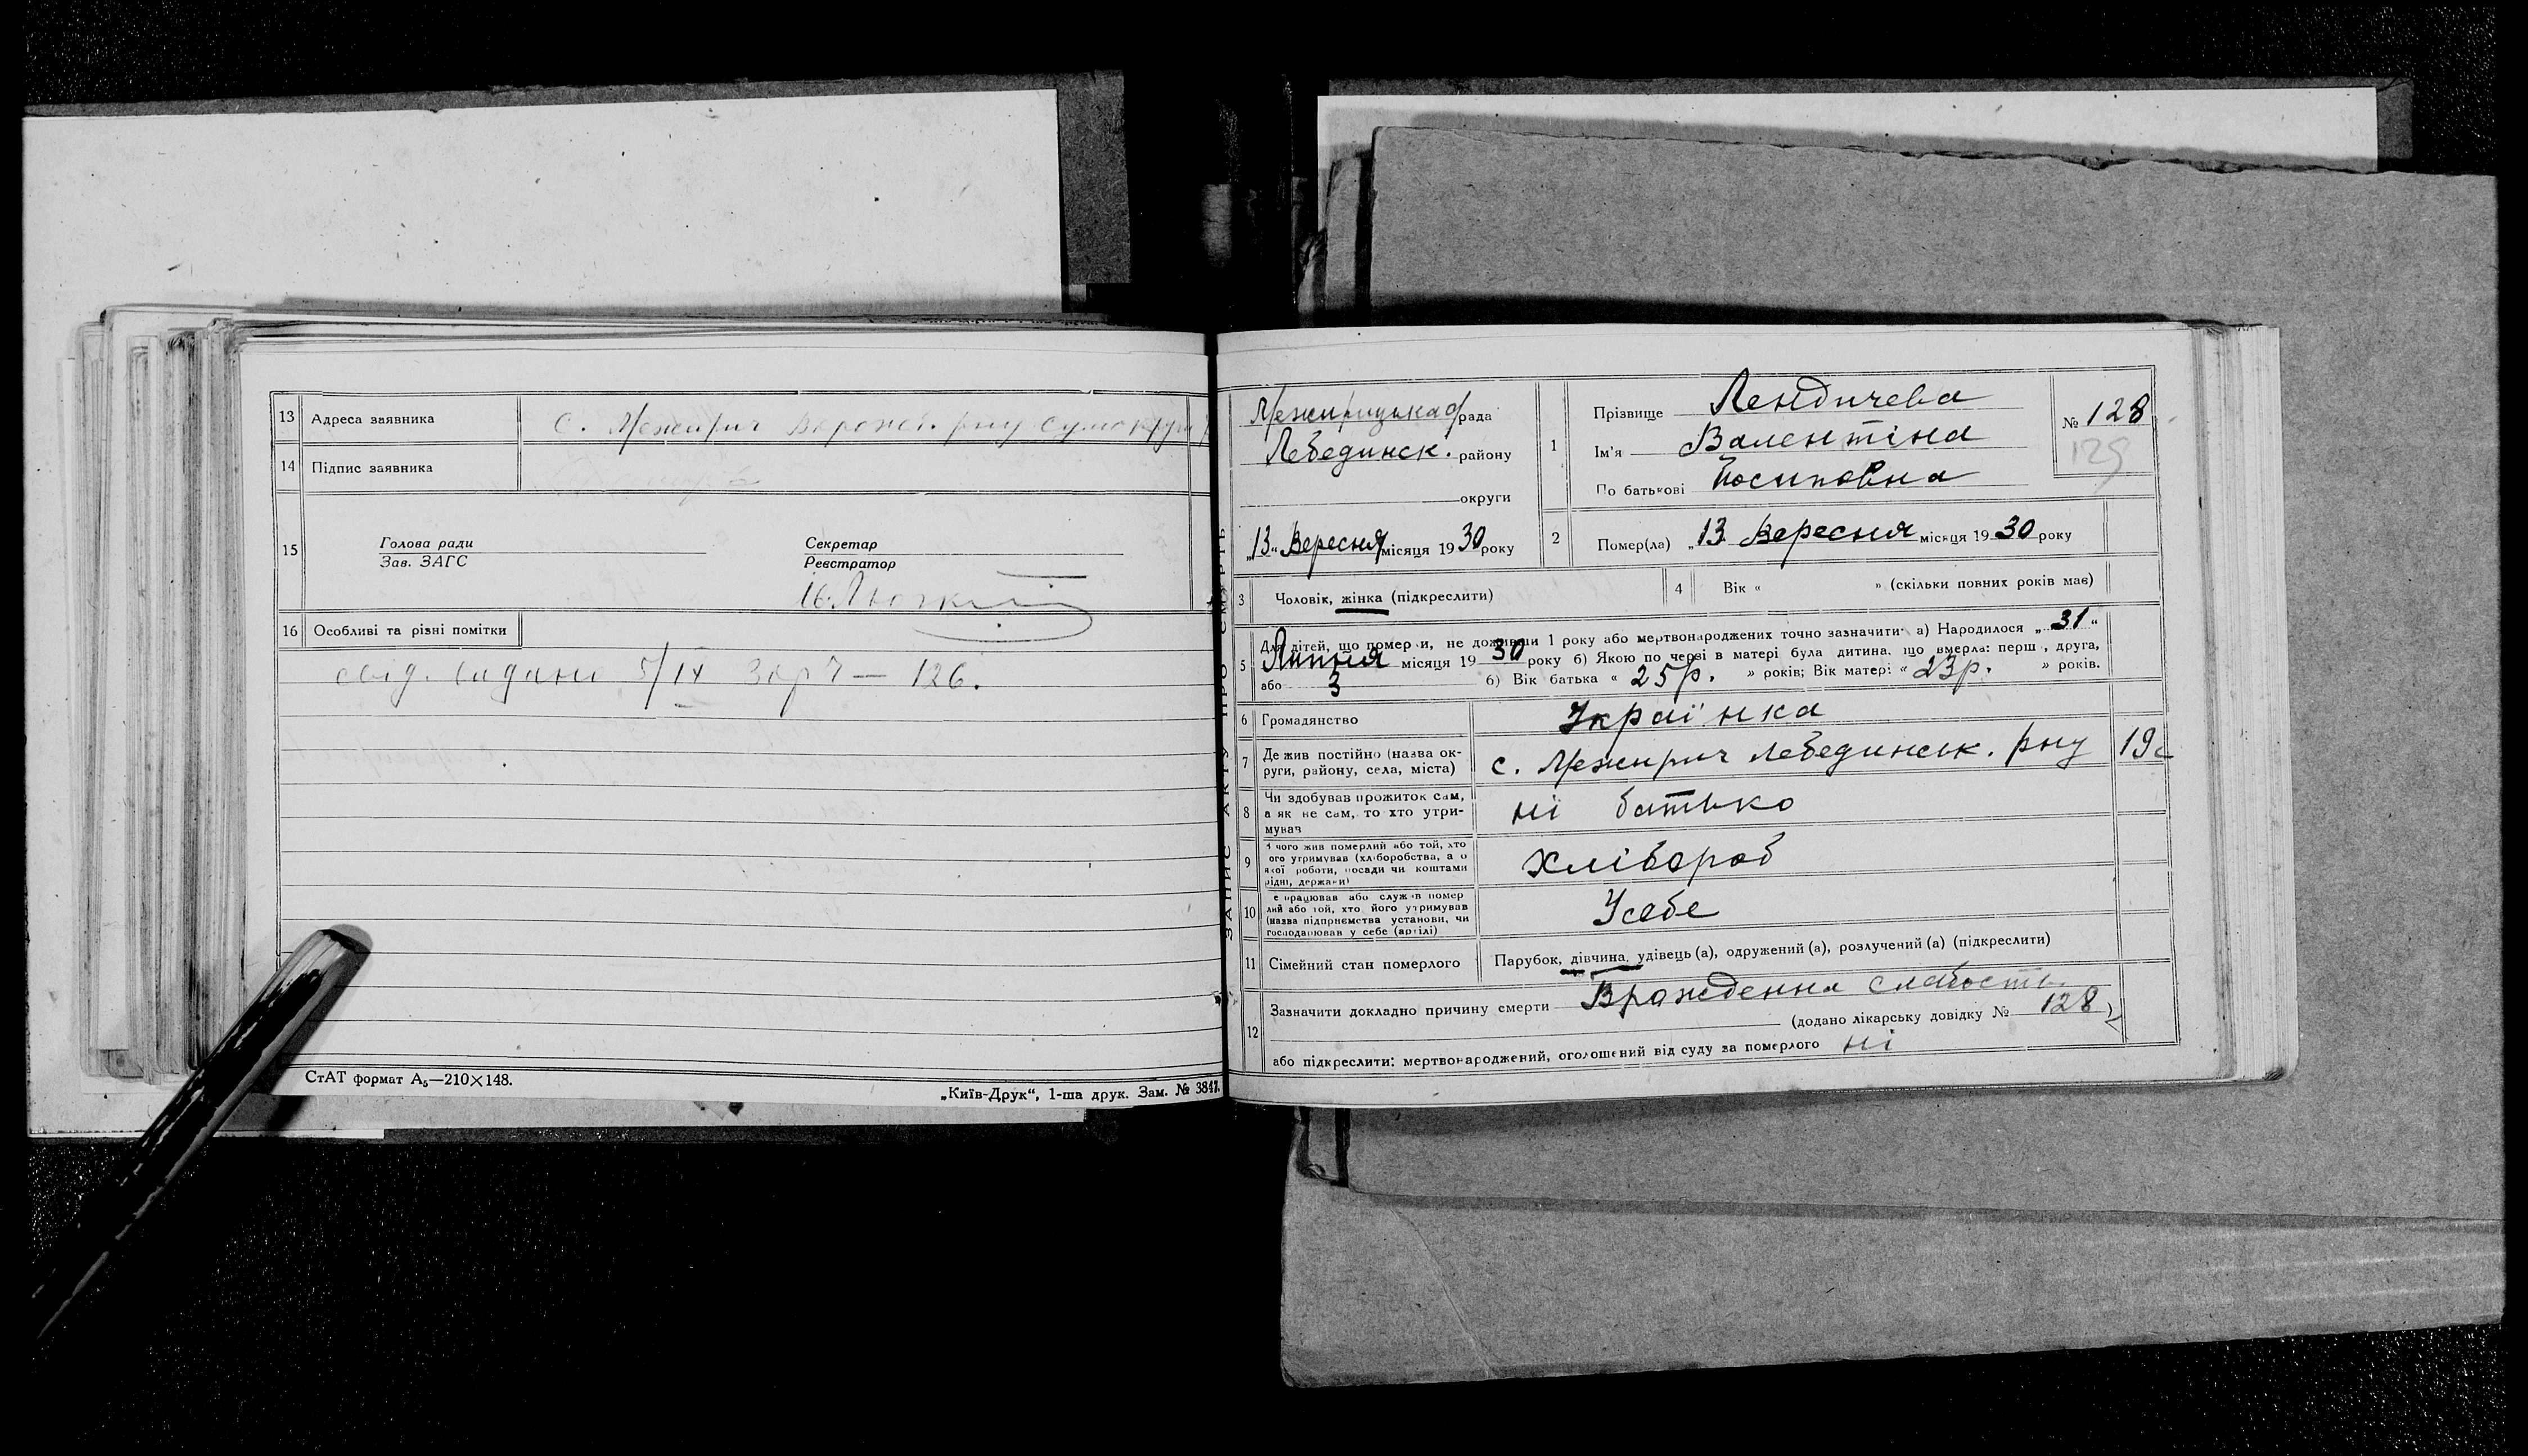 13 Адреса заявника с. Межирич Ворожб. рну Сумокруги
14 Підпис заявника
15 Голова ради Секретар
Зав. ЗАГС Реєстратор
16 Особливі та різні помітки
свід. видано 5/IX 30р Ч — 126.
СтАТ формат А₅—210×148.
„Київ-Друк“, 1-ша друк. Зам. № 3847.
ЗАПИС АКТУ ПРО СМЕРТЬ
Межирицька рада
Лебединск. району
округи
„13“ Вересня місяця 1930 року
1 Прізвище Лендичева
Ім'я Валентіна
По батькові Йосиповна
№ 128
129
2 Помер(ла) „13 Вересня місяця 1930 року
3 Чоловік, жінка (підкреслити)
4 Вік « » (скільки повних років має)
5 Для дітей, що померли, не доживши 1 року або мертвонароджених точно зазначити: а) Народилося „31“
Липня місяця 1930 року б) Якою по черзі в матері була дитина, що вмерла: перша, друга,
або 3 б) Вік батька « 25р. » років; Вік матері « 23р. » років.
6 Громадянство Українка
7 Де жив постійно (назва ок-
руги, району, села, міста) с. Межирич Лебединськ. рну 19
8 Чи здобував прожиток сам,
а як не сам, то хто утри-
мував ні батько
9 З чого жив померлий або той, хто
його утримував (хліборобства, а о
якої роботи, посади чи коштами
рідні, держави) хлібороб
10 е працював або служив помер
лий або той, хто його утримував
(назва підприємства установи, чи
господарював у себе (артілі) Усебе
11 Сімейний стан померлого Парубок, дівчина, удівець (а), одружений (а), розлучений (а) (підкреслити)
12 Зазначити докладно причину смерти Врожденна слабость
(додано лікарську довідку № 128)
або підкреслити: мертвонароджений, оголошений від суду за померлого ні